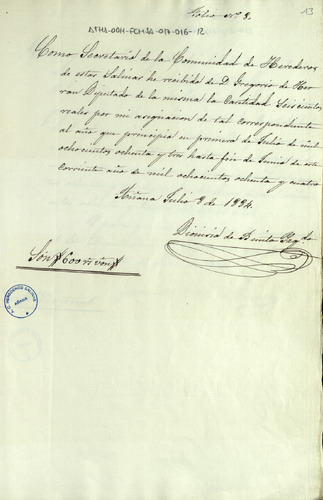 Folio nº 8.
13
ATHA-DAH-FCHSA-017-016-12
Como Secretario de la Comunidad de Herederos
de estas Salinas he recibido de D. Gregorio de Her
ran Diputado de la misma la Cantidad Seiscientos
reales por mi asignacion de tal correspondiente
al año que principia en primero de Julio de mil
ochocientos ochenta y tres hasta fin de Junio de este
corriente año de mil ochocientos ochenta y cuatro
Añana Julio 8 de 1884.
Dionisio de
Son #600 rs von#
AÑANA